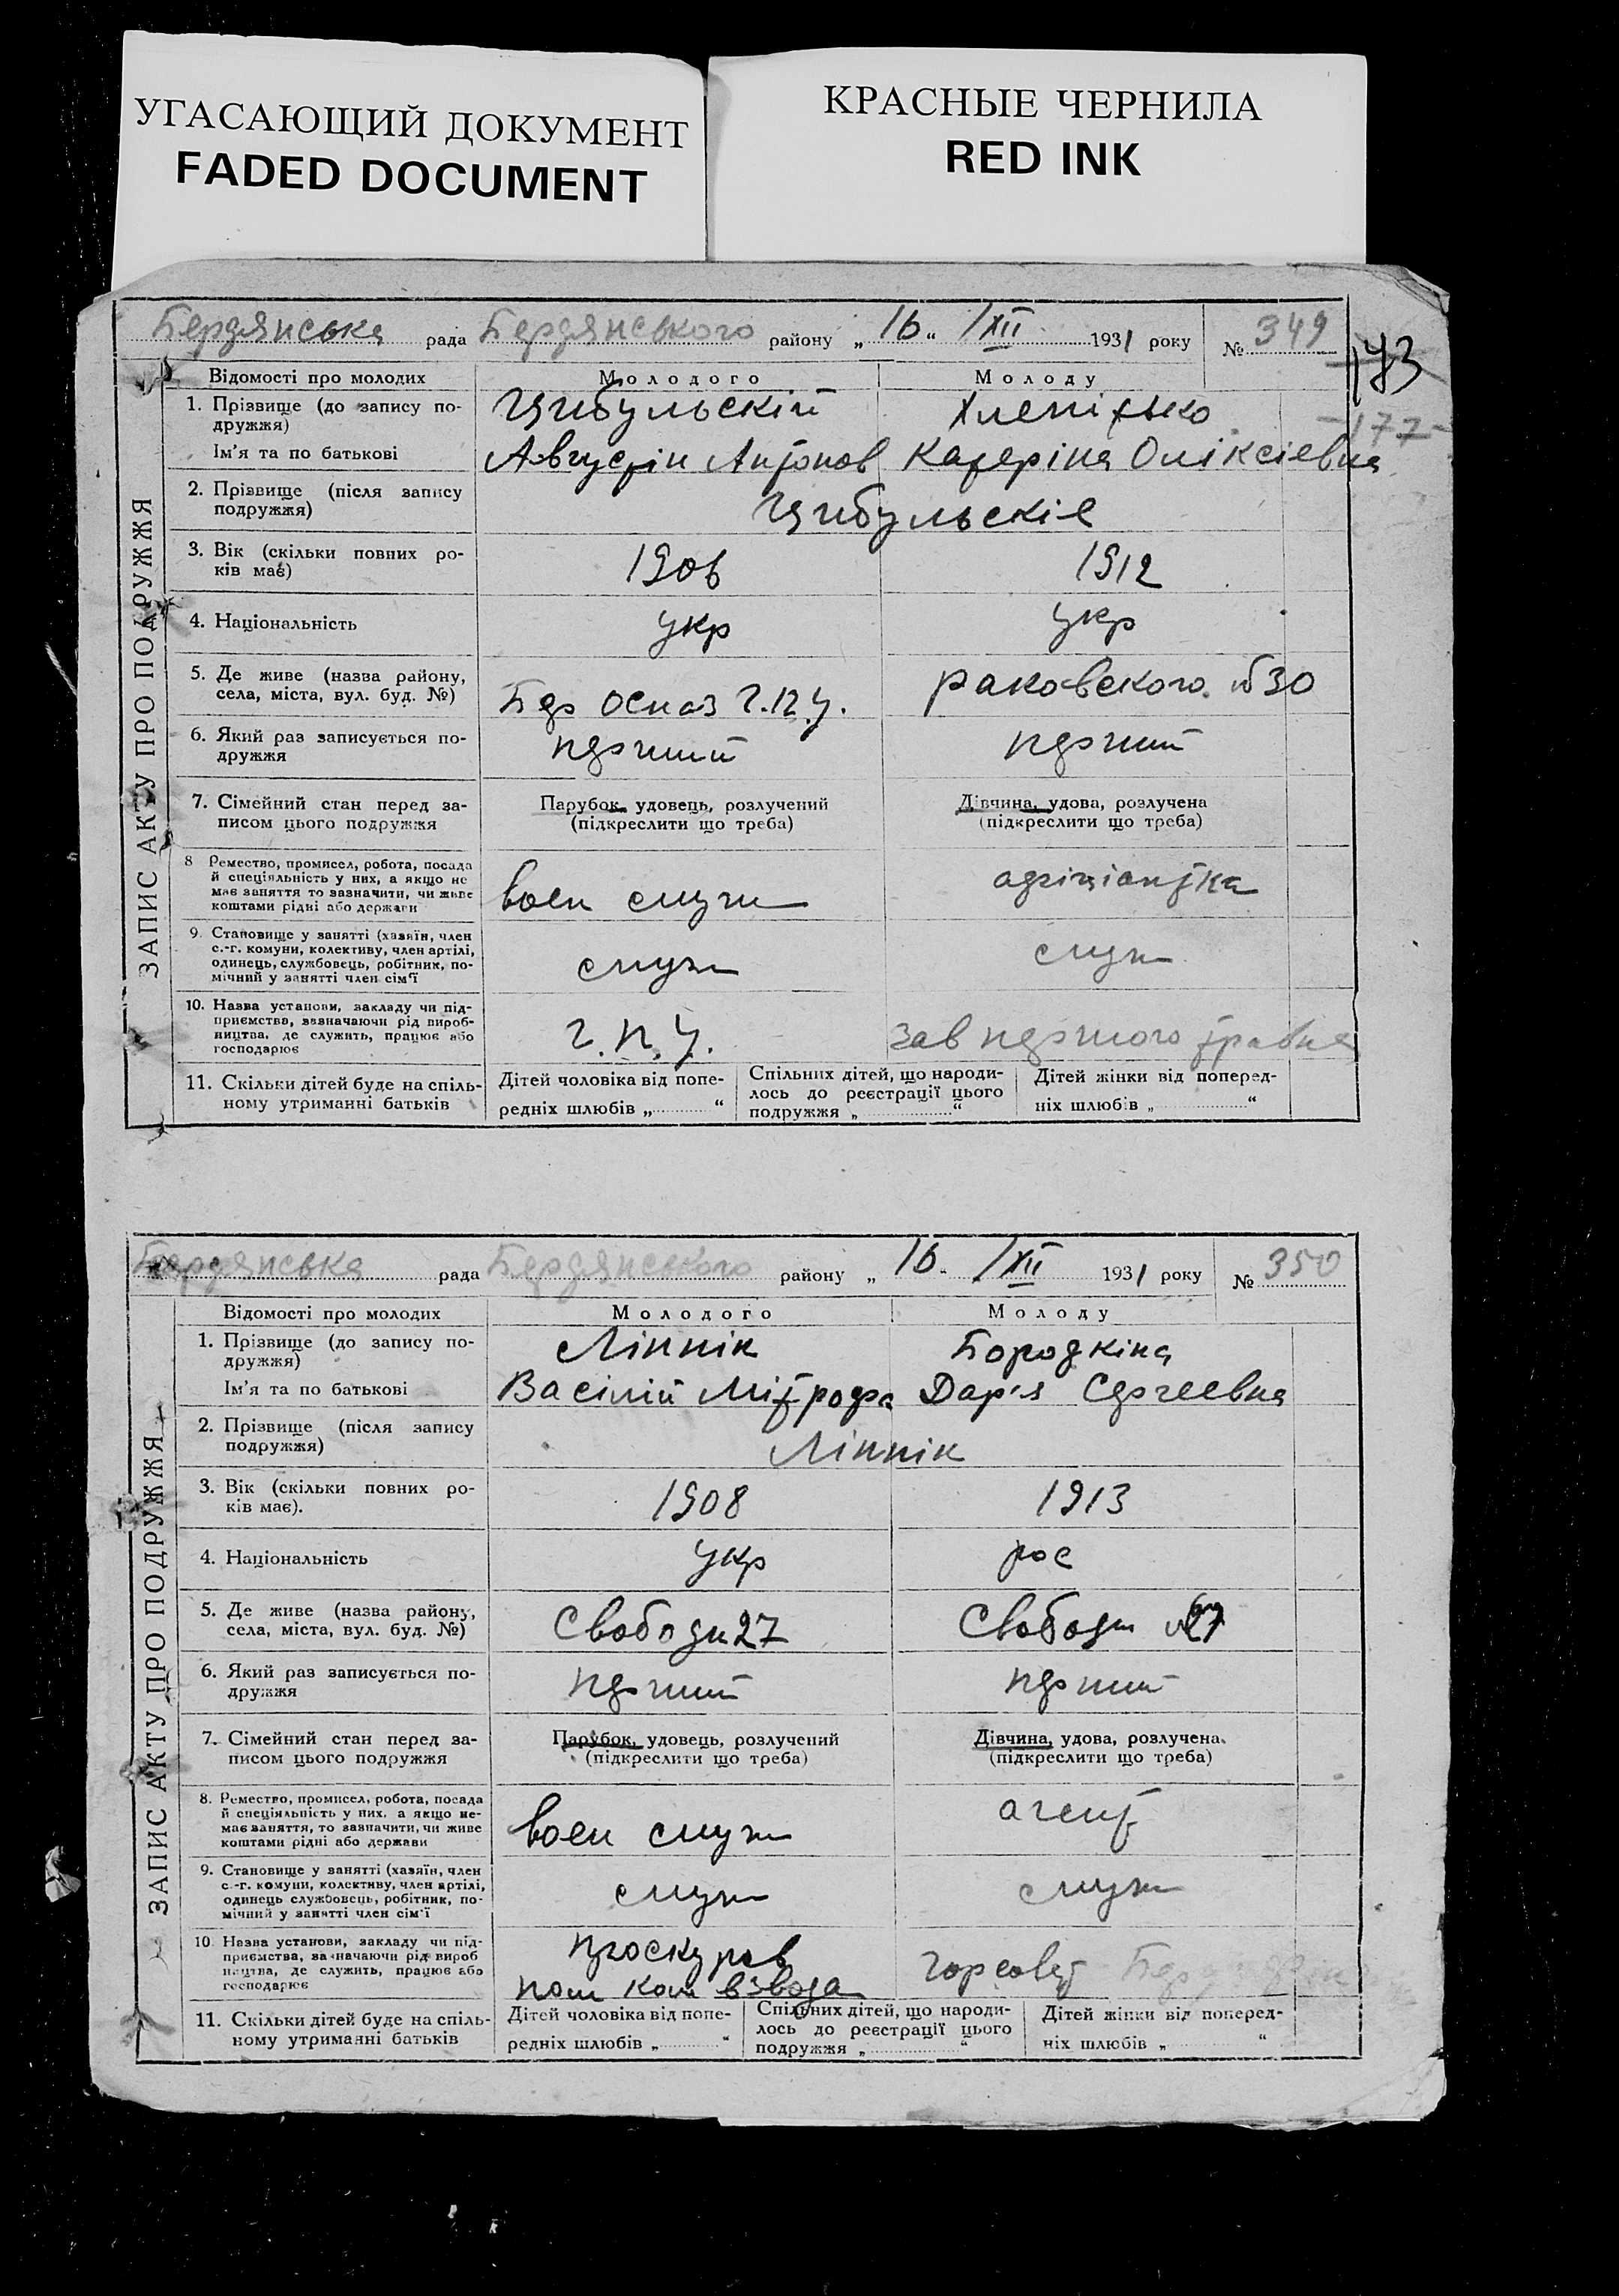 УГАСАЮЩИЙ ДОКУМЕНТ
FADED DOCUMENT
КРАСНЫЕ ЧЕРНИЛА
RED INK
Бердянська рада Бердянського району „16“ /XII 1931 року № 349
173
177
ЗАПИС АКТУ ПРО ПОДРУЖЖЯ
Відомості про молодих Молодого Молоду
1. Прізвище (до запису по-
дружжя)
Цибульскій
Ім'я та по батькові
Августін Антонов Катеріна Оліксіевна
2. Прізвище (після запису
подружжя)
Цибульскіе
3. Вік (скільки повних ро-
ків має)
1906 1912
4. Національність
укр укр
5. Де живе (назва району,
села, міста, вул. буд. №)
Бер Осназ Г.П.У. Раковского №30
6. Який раз записується по-
дружжя
перший перший
7. Сімейний стан перед за-
писом цього подружжя
Парубок, удовець, розлучений
(підкреслити що треба)
Дівчина, удова, розлучена
(підкреслити що треба)
8 Ремество, промисел, робота, посада
й спеціяльність у них, а якщо не
має заняття то зазначити, чи живе
коштами рідні або держави
воен служ
9. Становище у занятті (хазяїн, член
с.-г. комуни, колективу, член артілі,
одинець, службовець, робітник, по-
мічний у занятті член сім'ї
служ служ
10. Назва установи, закладу чи під-
приємства, зазначаючи рід вироб-
ництва, де служить, працює або
господарює
Г.П.У. Зав першого травня
11. Скільки дітей буде на спіль-
ному утриманні батьків
Дітей чоловіка від попе-
редніх шлюбів „ “
Спільних дітей, що народи-
лось до реєстрації цього
подружжя „ “
Дітей жінки від поперед-
ніх шлюбів „ “
Бердянська рада Бердянського району „16. /XII 1931 року № 350
ЗАПИС АКТУ ПРО ПОДРУЖЖЯ
Відомості про молодих Молодого Молоду
1. Прізвище (до запису по-
дружжя)
Ліннік Бородкіна
Ім'я та по батькові
Васілій Мітрофа Дар'я Сергеевна
2. Прізвище (після запису
подружжя)
Ліннік
3. Вік (скільки повних ро-
ків має).
1908 1913
4. Національність
укр рос
5. Де живе (назва району,
села, міста, вул. буд. №)
Свободи 27 Свободи №27
6. Який раз записується по-
дружжя
перший перший
7. Сімейний стан перед за-
писом цього подружжя
Парубок, удовець, розлучений
(підкреслити що треба)
Дівчина, удова, розлучена
(підкреслити що треба)
8. Ремество, промисел, робота, посада
й спеціяльність у них, а якщо не-
має заняття, то зазначити, чи живе
коштами рідні або держави
воен служ агент
9. Становище у занятті (хазяїн, член
с.-г. комуни, колективу, член артілі,
одинець службовець, робітник, по-
мічний у занятті член сім'ї
служ служ
10. Назва установи, закладу чи під-
приємства, зазначаючи рід вироб
ництва, де служить, працює або
господарює
Проскуров
пом ком взвода
11. Скільки дітей буде на спіль-
ному утриманні батьків
Дітей чоловіка від попе-
редніх шлюбів „ “
Спільних дітей, що народи-
лось до реєстрації цього
подружжя „ “
Дітей жінки від поперед-
ніх шлюбів „ “